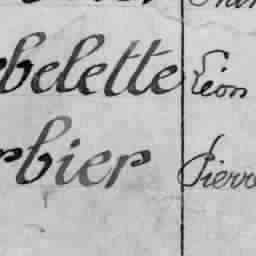 belette Léon
rbier Pierre